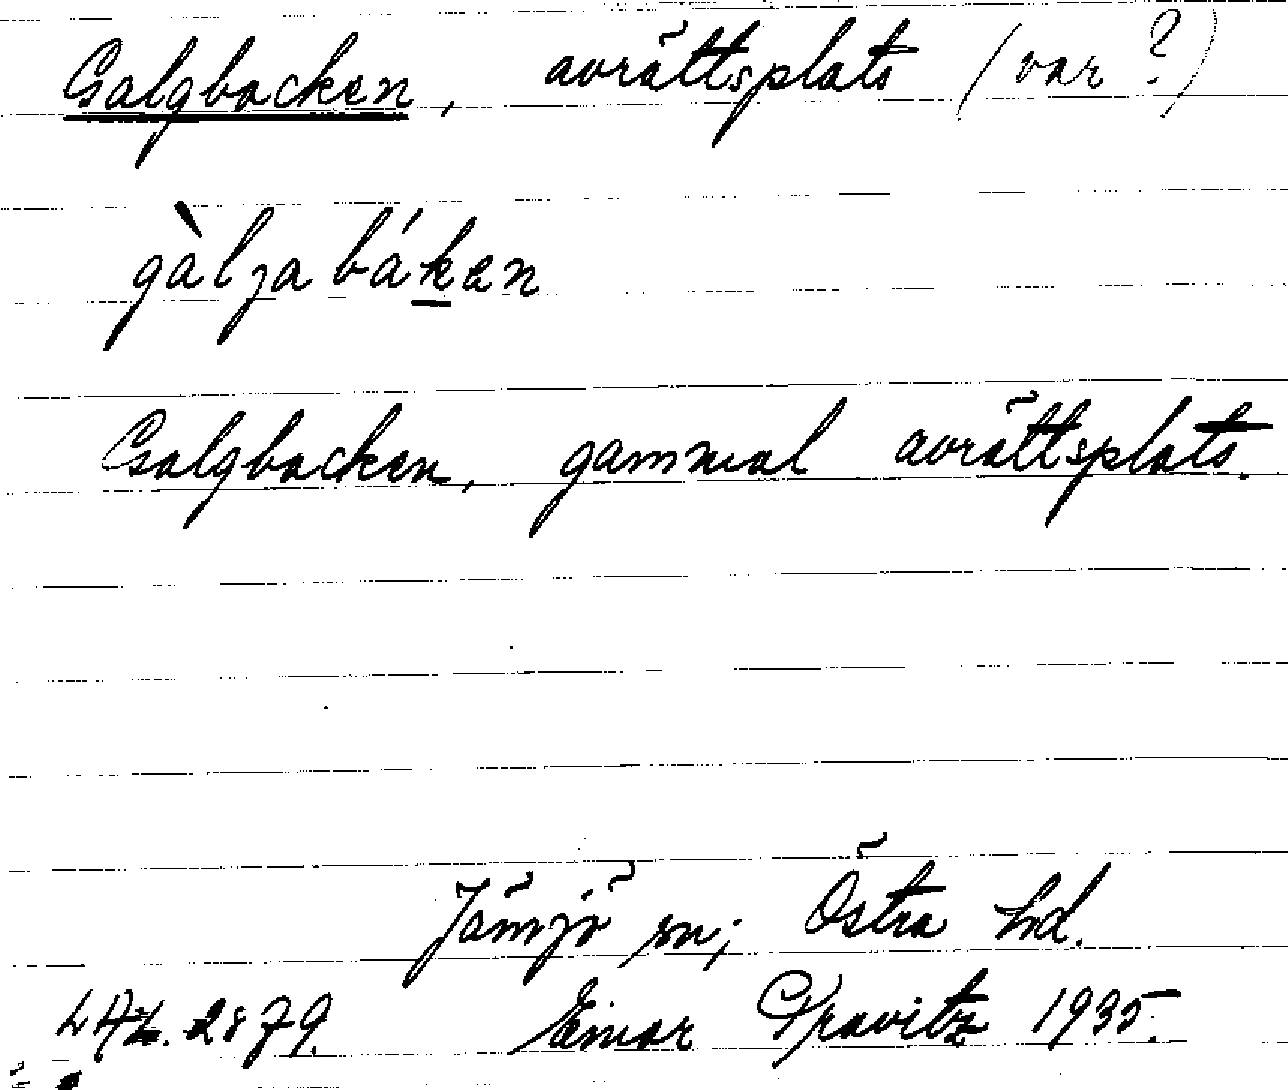 Galgbacken, avrättsplats (var?)
gàlja báken
Galgbacken, gammal avrättsplats.
Jämjö sn; Östra hd.
2879. Einar Kravitz 1935.